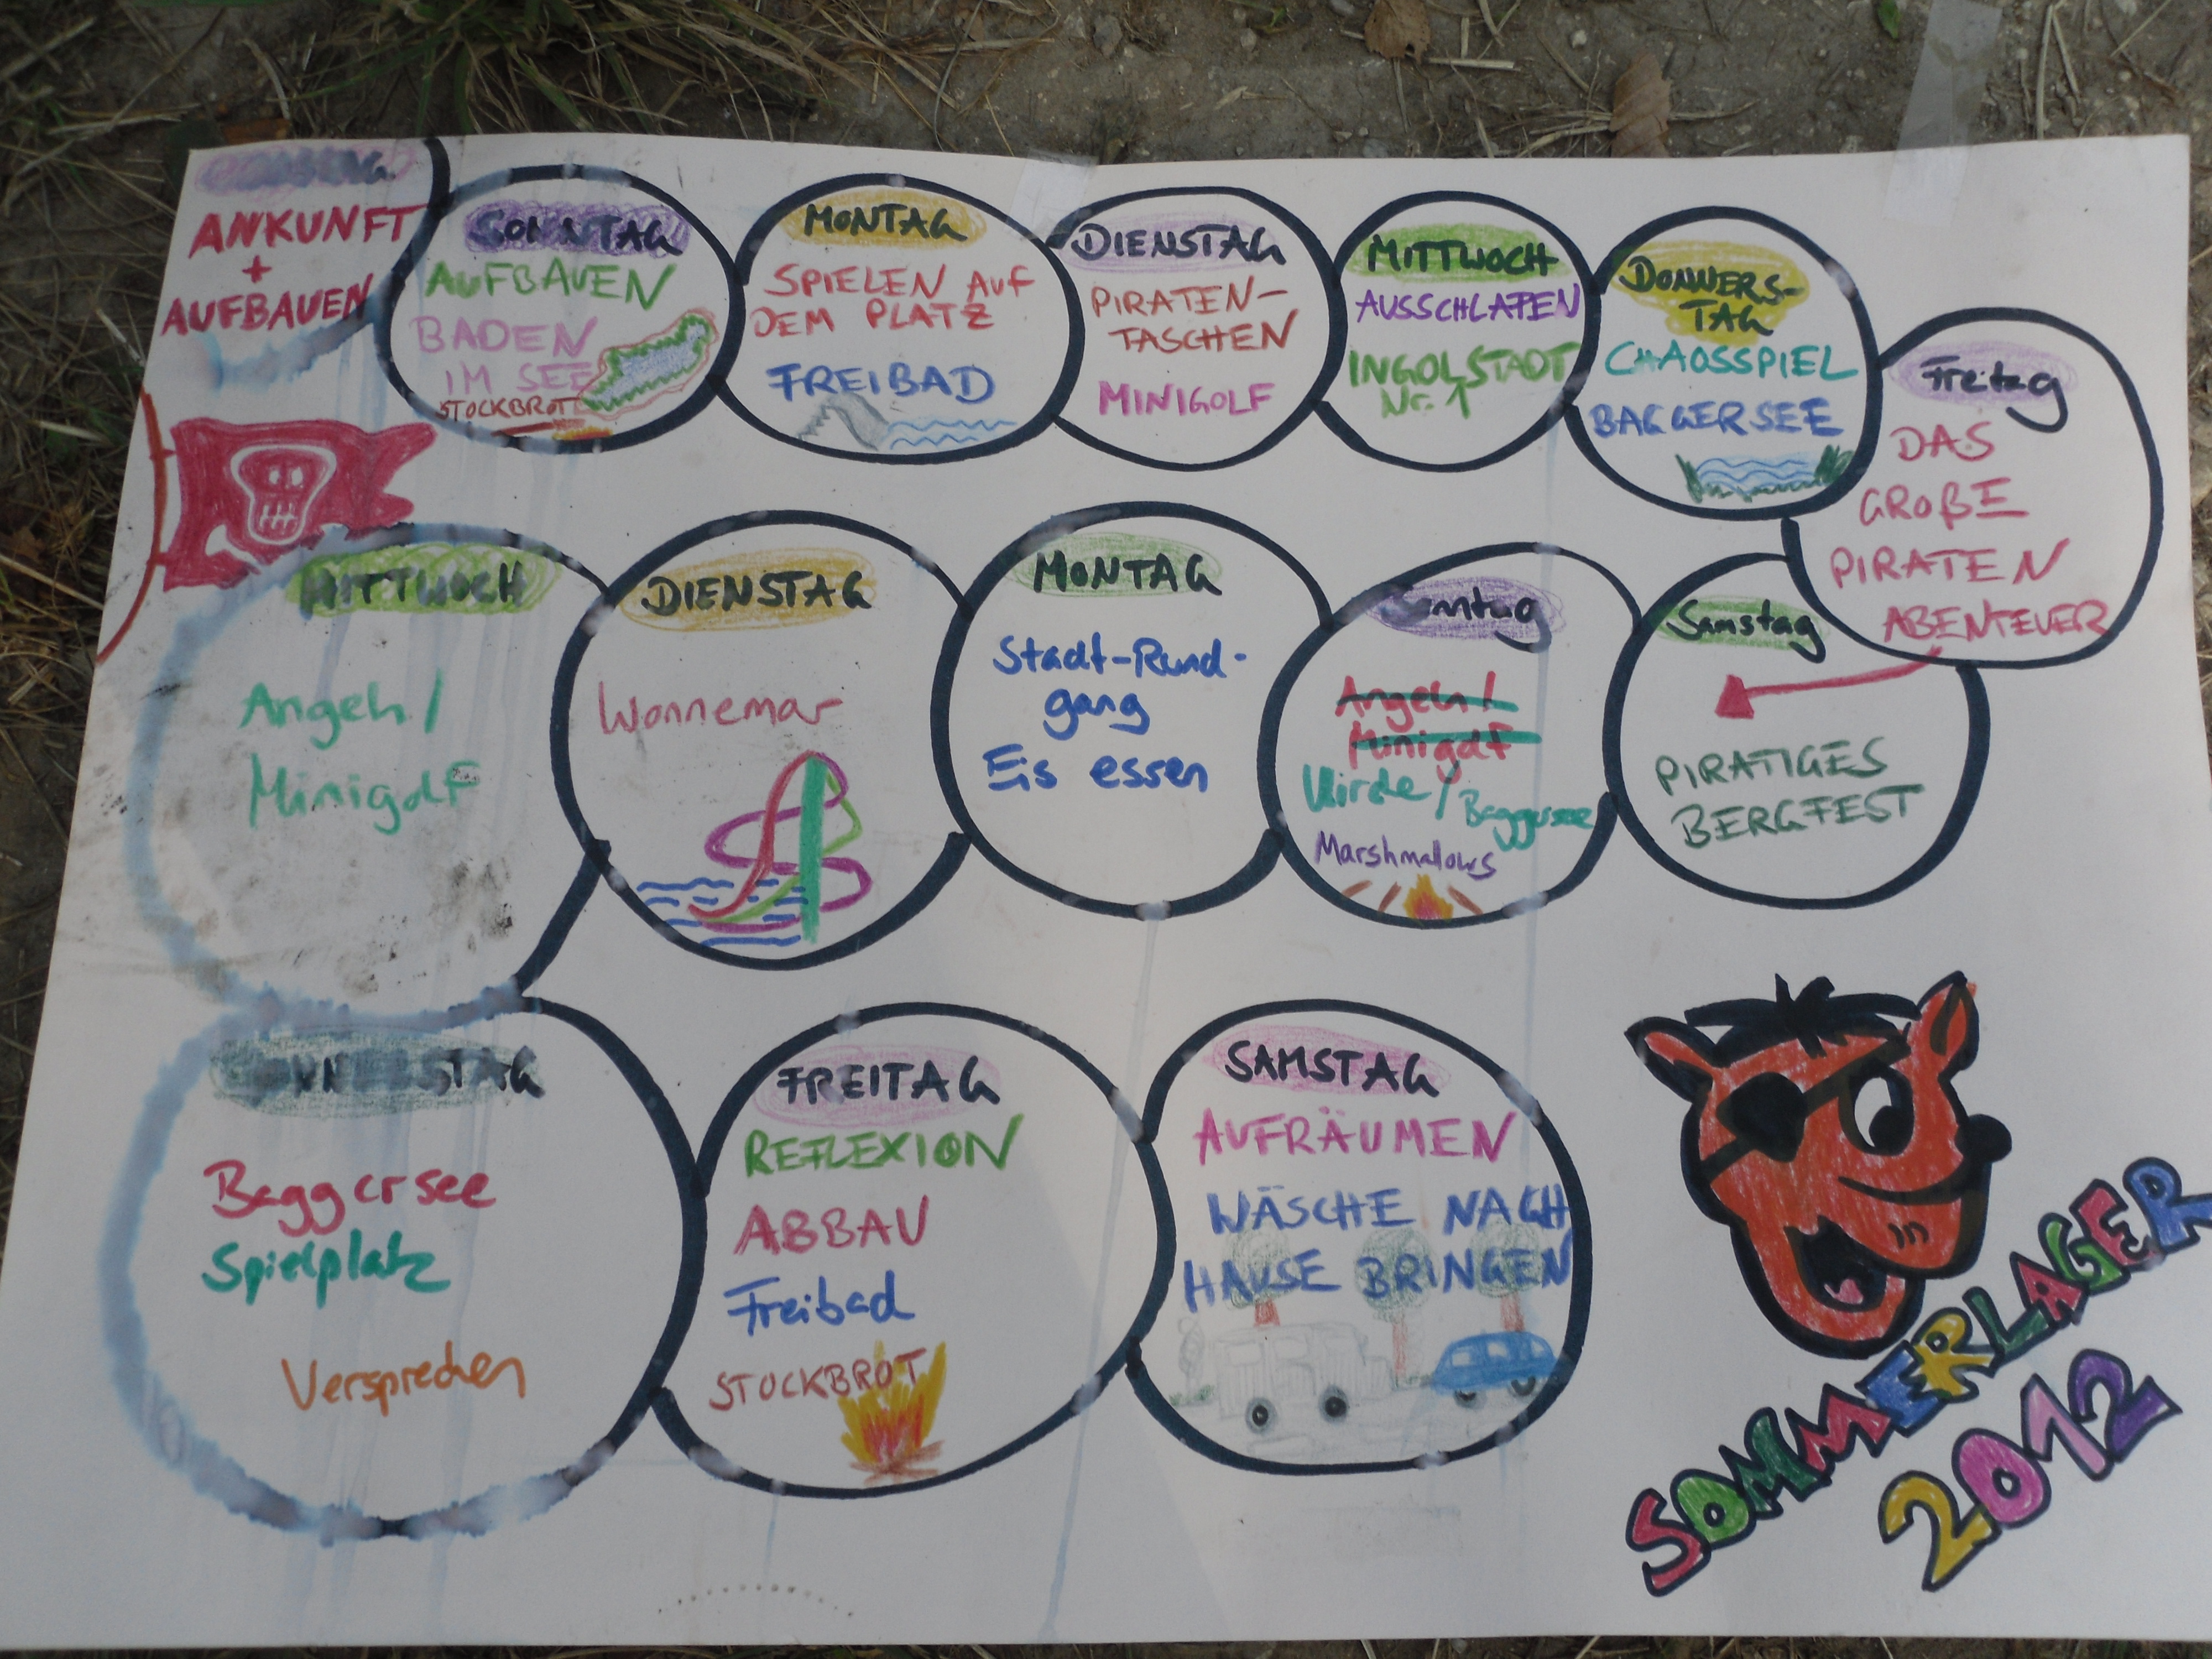 ANKUNFT
+
AUFBAUEN
SONNTAG
AUFBAUEN
BADEN
IM SEE
STOCKBROT
MONTAG
SPIELEN AUF
DEM PLATZ
FREIBAD
DIENSTAG
PIRATEN-
TASCHEN
MINIGOLF
MITTWOCH
AUSSCHLAFEN
INGOLSTADT
Nr. 1
DONNERS-
TAG
CHAOSSPIEL
BAGGERSEE
Freitag
DAS
GROßE
PIRATEN
ABENTEUER
Samstag
PIRATIGES
BERGFEST
Sonntag
Angeln /
Minigolf
Kirche / Baggersee
Marshmallows
MONTAG
Stadt-Rund-
gang
Eis essen
DIENSTAG
Wonnemar
MITTWOCH
Angeln /
Minigolf
DONNERSTAG
Baggersee
Spielplatz
Versprechen
FREITAG
REFLEXION
ABBAU
Freibad
STOCKBROT
SAMSTAG
AUFRÄUMEN
WÄSCHE NACH
HAUSE BRINGEN
SOMMERLAGER
2012